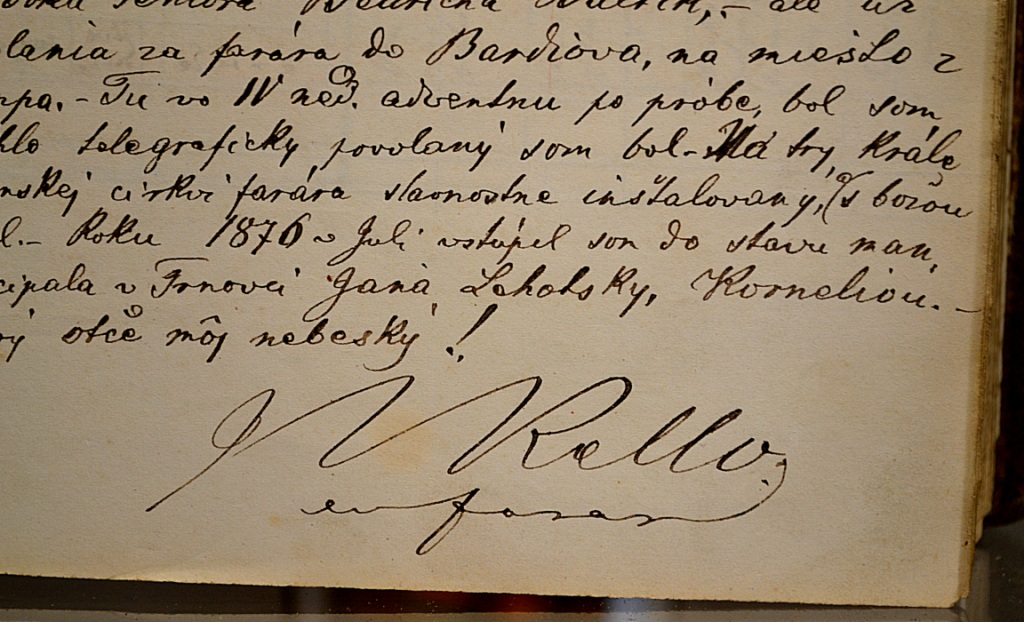 seniora Bedřicha ale už
za farára do Bardiova, na miesto z
Tu vo IV ned. adventnu po próbe, bol som
telegraficky povolaný som bol - Na try krále
cirkvi farára slavnostne inštalovaný, (s božou
Roku 1876 v Juli vstúpil som do stavu man,
v Trnovci Jana Lehotsky, Korneliou. -
otče môj nebeský!
Kello.
ev farar